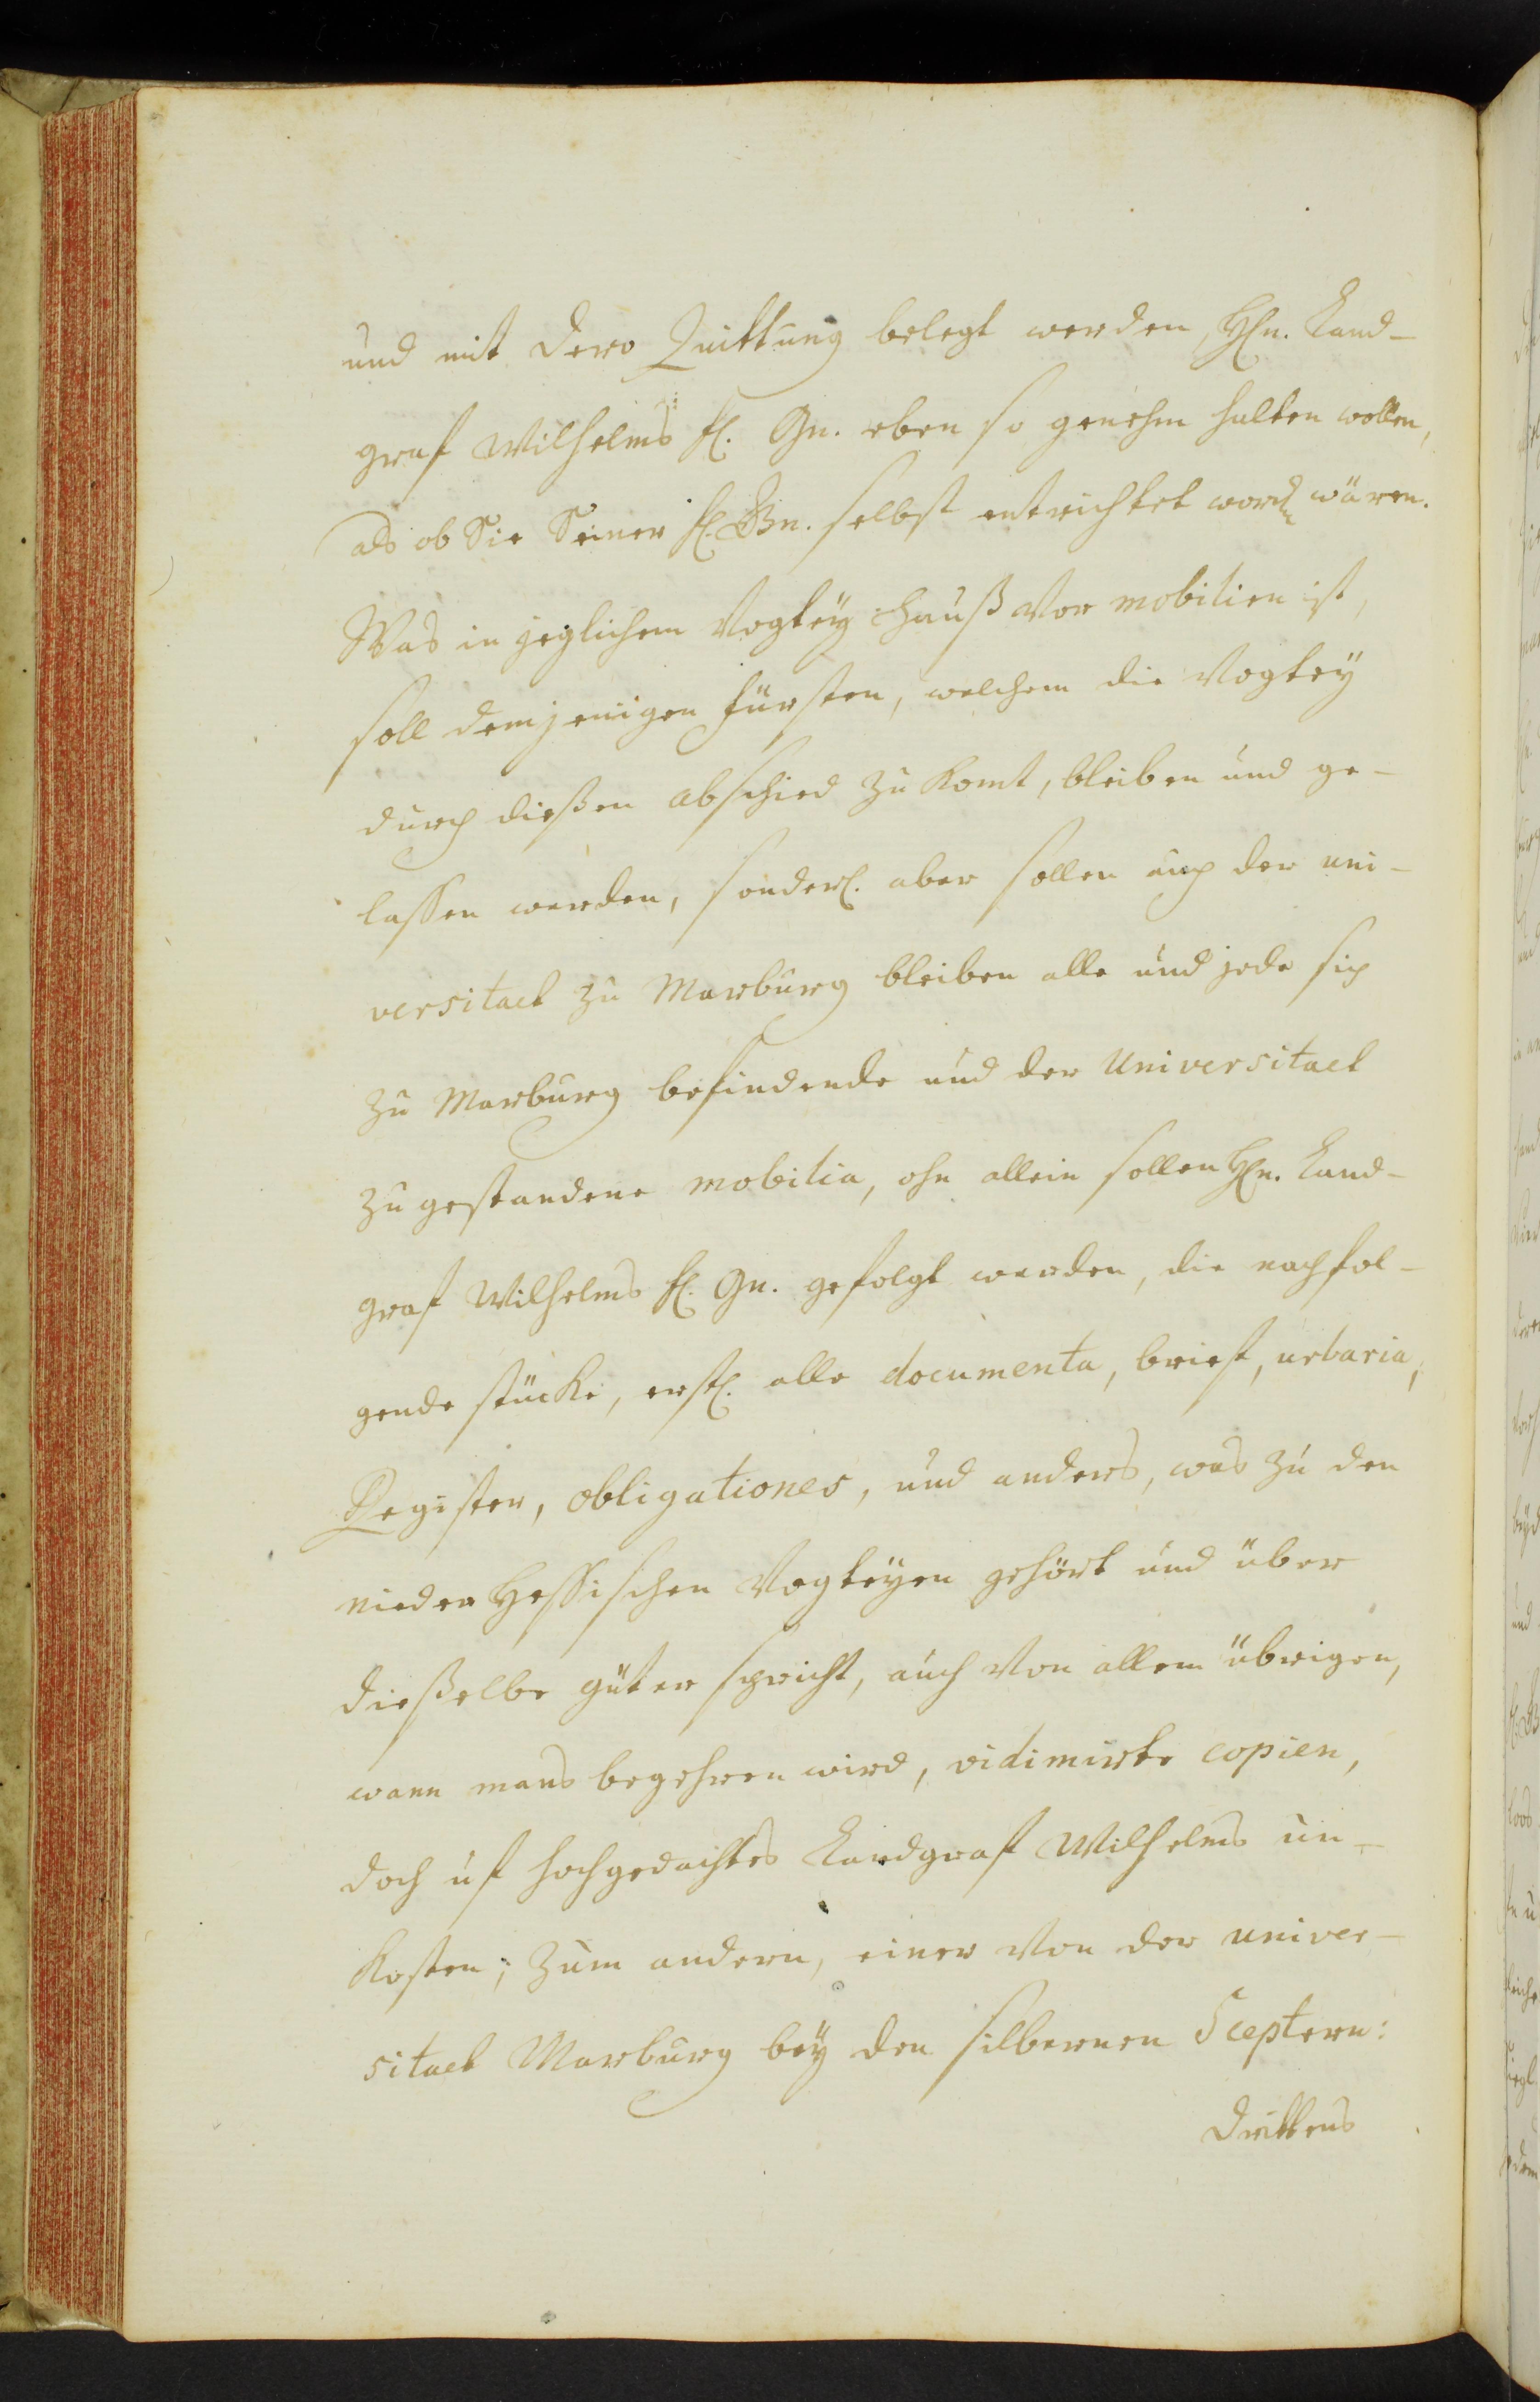 und mit Dero Quittung belegt werden, Hn. Land-
graf Wilhelms fl. Gn. eben so genehm halten wollen,
als ob Sie Seiner fl. Gn. selbst entrichtet worden wären.
Was in jeglichem Vogtey Hauß vor mobilien ist,
soll demjenigen fürsten, welchem die Vogtey
durch dießen abschied zu komt, bleiben und ge-
lassen werden, sonderl. aber sollen auch der uni-
versitaet zu Marburg bleiben alle und jede sich
zu Marburg befindende und der Universitaet
zu gestandene mobilia, ohn allein sollen Hn. Land-
graf Wilhelms fl. Gn. gefolgt werden, die nachfol-
gende stücke, erstl. alle documenta, brief, urbaria,
Register, obligationes, und anders, was zu den
nieder Hessischen Vogteyen gehört und über
dießelbe güter spricht, auch von allem übrigen,
wann mans begehren wird, vidimirte copien,
doch uf hochgedachtes Landgraf Wilhelms un-
kosten; zum andern, einer von der univer-
sitaet Marburg bey den silbernen Sceptern:
Drittens